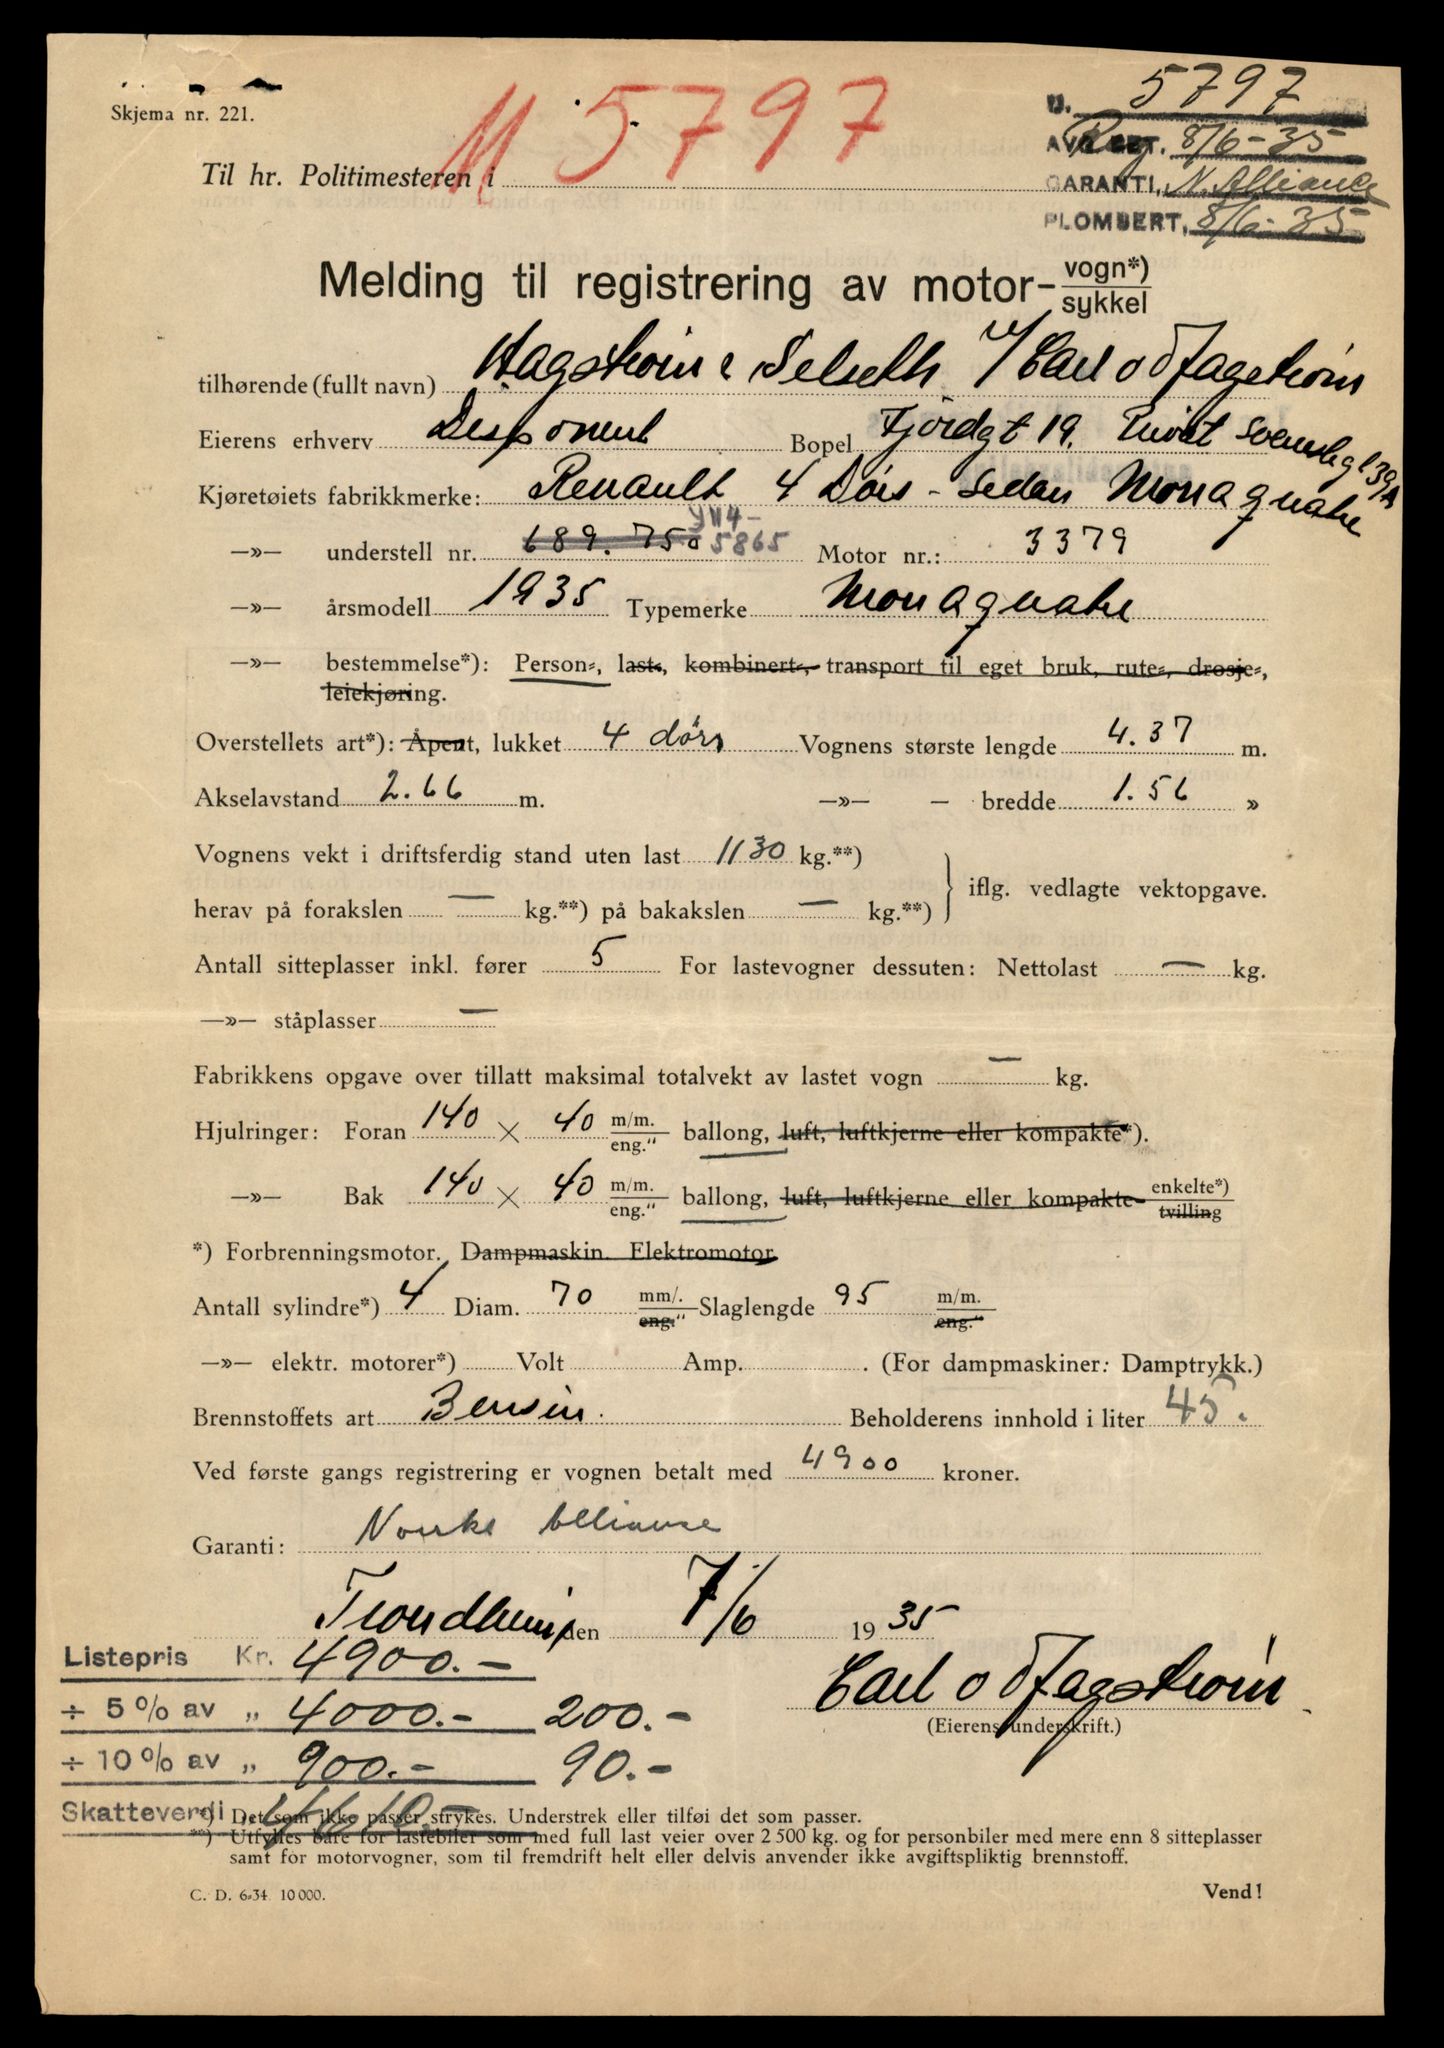 Skjema nr. 221.
M 5797
U. 5797
AVG. BET. Reg 8/6-35
GARANTI, N. Alliance
PLOMBERT, 8/6-35
Til hr. Politimesteren i
Melding til registrering av motor-vogn*)/sykkel
tilhørende (fullt navn) Hagstrøm & Selseth v/ Carl O Hagstrøm
Eierens erhverv Disponent Bopel Fjordgt 19. Privat
Kjøretøiets fabrikkmerke: Renault 4 Dørs - Sedan Monaquatre
—»— understell nr. 689.750 YN4-5865 Motor nr.: 3379
—»— årsmodell 1935 Typemerke Monaquatre
—»— bestemmelse*): Person-, last-, kombinert-, transport til eget bruk, rute-, drosje-,
leiekjøring.
Overstellets art*): Åpent, lukket 4 dørs Vognens største lengde 4.37 m.
Akselavstand 2.66 m. —»— — bredde 1.56 »
Vognens vekt i driftsferdig stand uten last 1130 kg.**)
herav på forakslen — kg.**) på bakakslen — kg.**) } iflg. vedlagte vektopgave.
Antall sitteplasser inkl. fører 5 For lastevogner dessuten: Nettolast — kg.
—»— ståplasser —
Fabrikkens opgave over tillatt maksimal totalvekt av lastet vogn — kg.
Hjulringer: Foran 140 × 40 m/m./eng." ballong, luft, luftkjerne eller kompakte*).
—»— Bak 140 × 40 m/m./eng." ballong, luft, luftkjerne eller kompakte- enkelte*)/tvilling
*) Forbrenningsmotor. Dampmaskin. Elektromotor
Antall sylindre*) 4 Diam. 70 mm/./eng." Slaglengde 95 m/m./eng."
—»— elektr. motorer*) Volt Amp. . (For dampmaskiner: Damptrykk.)
Brennstoffets art Bensin. Beholderens innhold i liter 45.
Ved første gangs registrering er vognen betalt med 4900 kroner.
Garanti: Norske Alliance
Trondheim den 7/6 1935
Listepris Kr. 4900.-
Carl O Hagstrøm
(Eierens underskrift.)
÷ 5% av „ 4000.- 200.-
÷ 10% av „ 900.- 90.-
Skatteverdi „ 4610.-
*) Det som ikke passer strykes. Understrek eller tilføi det som passer.
**) Utfylles bare for lastebiler som med full last veier over 2 500 kg. og for personbiler med mere enn 8 sitteplasser
samt for motorvogner, som til fremdrift helt eller delvis anvender ikke avgiftspliktig brennstoff.
C. D. 6-34 10 000.
Vend!